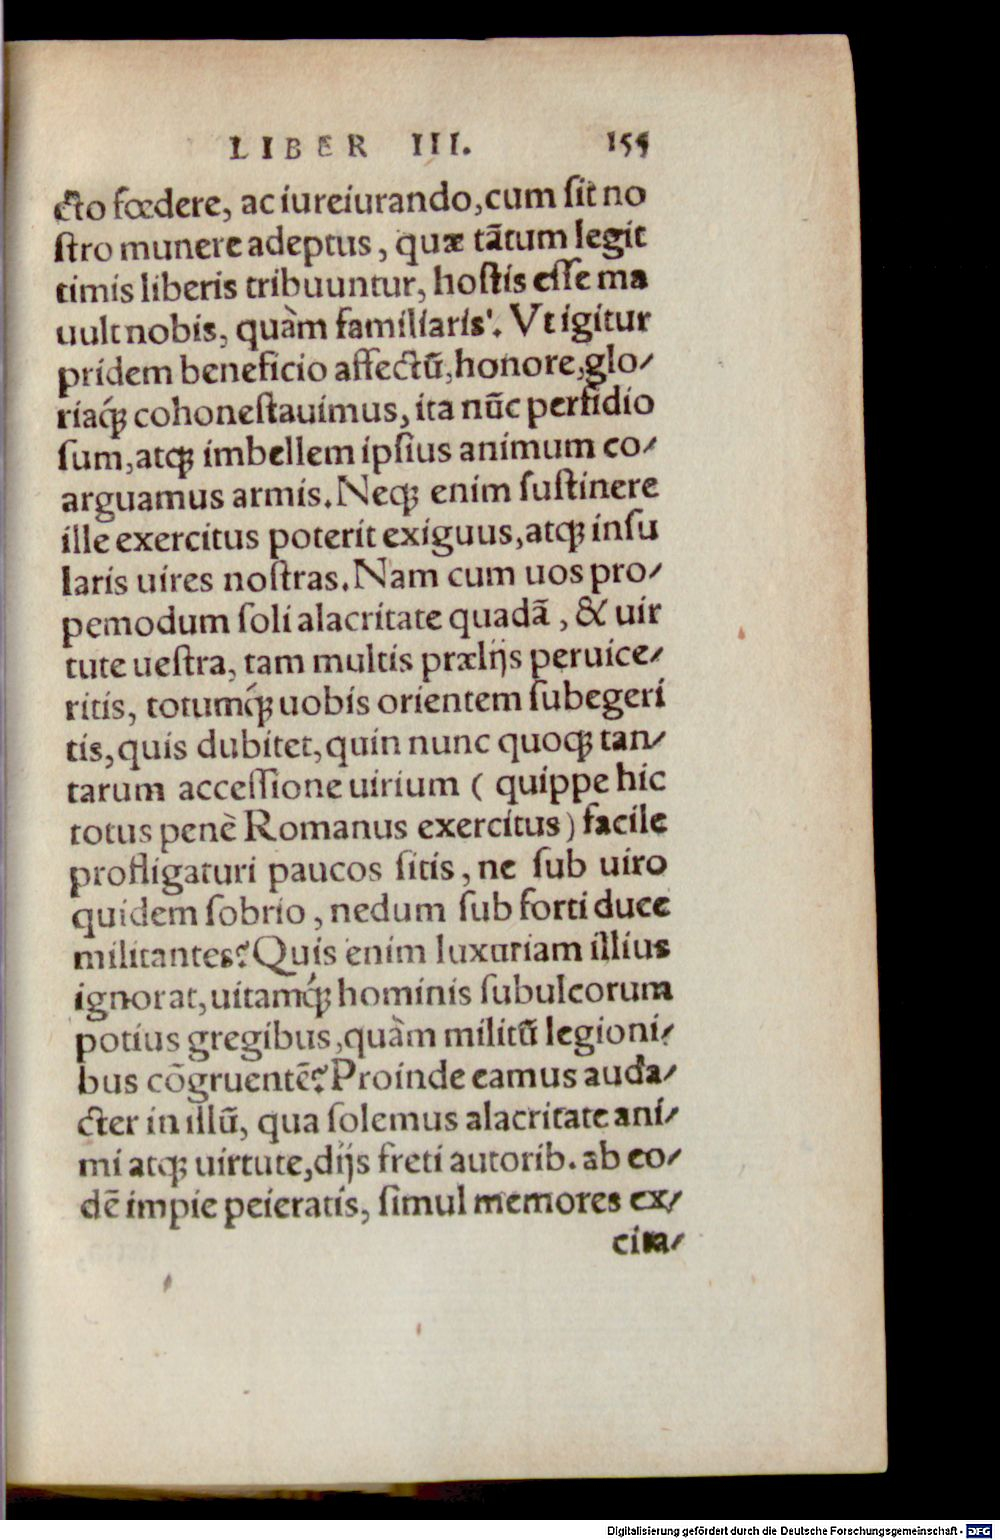 LIBER III. 155
cto fœdere, ac iureiurando,cum ſit no
ſtro munere adeptus, quæ tãtum legit
timis liberis tribuuntur, hoſtis eſſe ma
uult nobis, quàm familiaris. Vt igitur
pridem beneficio affectũ,honore,glo/
riaq́ꝫ cohoneſtauimus, ita nũc perfidio
ſum,atqꝫ imbellem ipſius animum co/
arguamus armis. Neqꝫ enim ſuſtinere
ille exercitus poterit exiguus,atqꝫ inſu
laris uires noſtras. Nam cum uos pro/
pemodum ſoli alacritate quadã, & uir
tute ueſtra, tam multis prælijs peruice/
ritis, totumq́ꝫ uobis orientem ſubegeri
tis,quis dubitet,quin nunc quoqꝫ tan/
tarum acceſſione uirium ( quippe hic
totus penè Romanus exercitus) facile
profligaturi paucos ſitis, ne ſub uiro
quidem ſobrio, nedum ſub forti duce
militantes? Quis enim luxuriam illius
ignorat,uitamq́ꝫ hominis ſubulcorum
potius gregibus,quàm militũ legioni/
bus cõgruentẽ? Proinde eamus auda/
cter in illũ, qua ſolemus alacritate ani/
mi atqꝫ uirtute,dijs freti autorib. ab eo/
dẽ impie peieratis, ſimul memores ex/
cim/
Digitalisierung gefördert durch die Deutsche Forschungsgemeinschaft - DFG